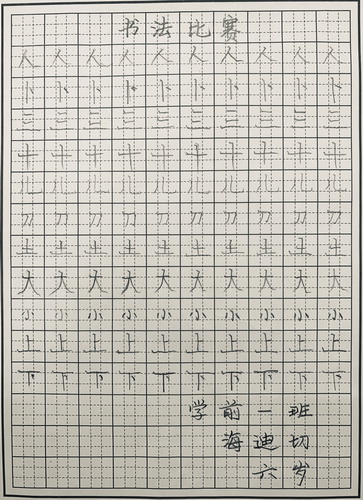 书法比赛
人人人人人人人人人人
卜卜卜卜卜卜卜卜卜卜
三三三三三三三三三三
十十十十十十十十十十
刀刀刀刀刀刀刀刀刀刀
土土土土土土土土土土
大大大大大大大大大大
小小小小小小小小小小
上上上上上上上上上上
下下下下下下下下下下
学前一班
海迪切
六岁